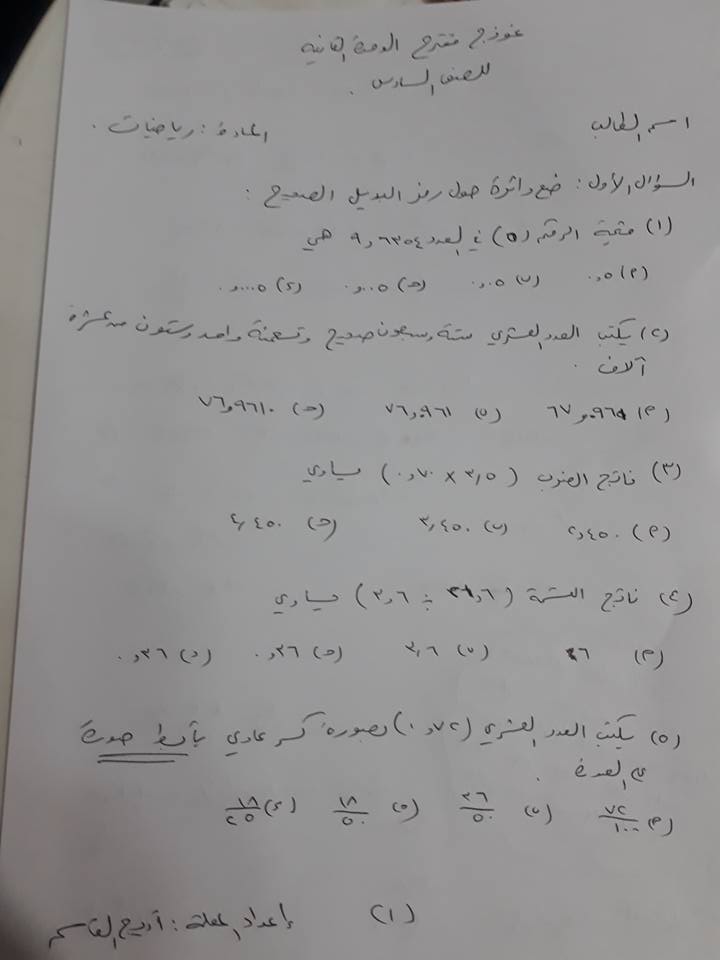 نموذج مقترح الوحدة الثانية
للصف السادس .
اسم الطالب المادة : رياضيات .
السؤال الأول : ضع دائرة حول رمز البديل الصحيح :
(١) قيمة الرقم (٥) في العدد ٩,٦٣٥٤ هي
٢) ٠,٥ ب) ٠,٠٥ ج) ٠,٠٠٥ د) ٠,٠٠٠٥
(٢) يكتب العدد العشري ستة وسبعون صحيح وتسعمئة واحد وستون من عشرة
آلاف .
٢) ٦٧,٠٩٦١ ب) ٧٦,٠٩٦١ ج) ٧٦,٩٦١٠
(٣) ناتج الضرب (٠,٧٠ × ٣,٥) يساوي
٢) ٢,٤٥٠ ب) ٣,٤٥٠ ج) ٤,٤٥٠
(٤) ناتج القسمة ( ÷ ٣,٦) يساوي
٢) ٦ ب) ٣,٦ ج) ٠,٣٦ د) ٠,٠٣٦
(٥) يكتب العدد العشري (٠,٧٢) بصورة كسر عادي بأبسط صورة
.
٢) ٧٢/١٠٠ ب) ٣٦/٥٠ ج) ١٨/٥٠ د) ١٨/٢٥
(١) إعداد المعلمة : أريج القاسم